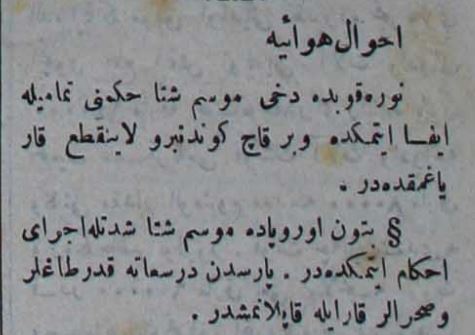 احوال هوائیه
نوره‌قوبده دخی موسم شتا حکمنی تمامیله
ایفا ایتمکده وبر قاچ کوندنبرو لاینقطع قار
یاغمقده‌در .
§ بتون اوروپاده موسم شتا شدتله اجرای
احکام ایتمکده‌در . پارسدن درسعاته قدرطاغلر
وصحرالر قارایله قاپلانمشدر .